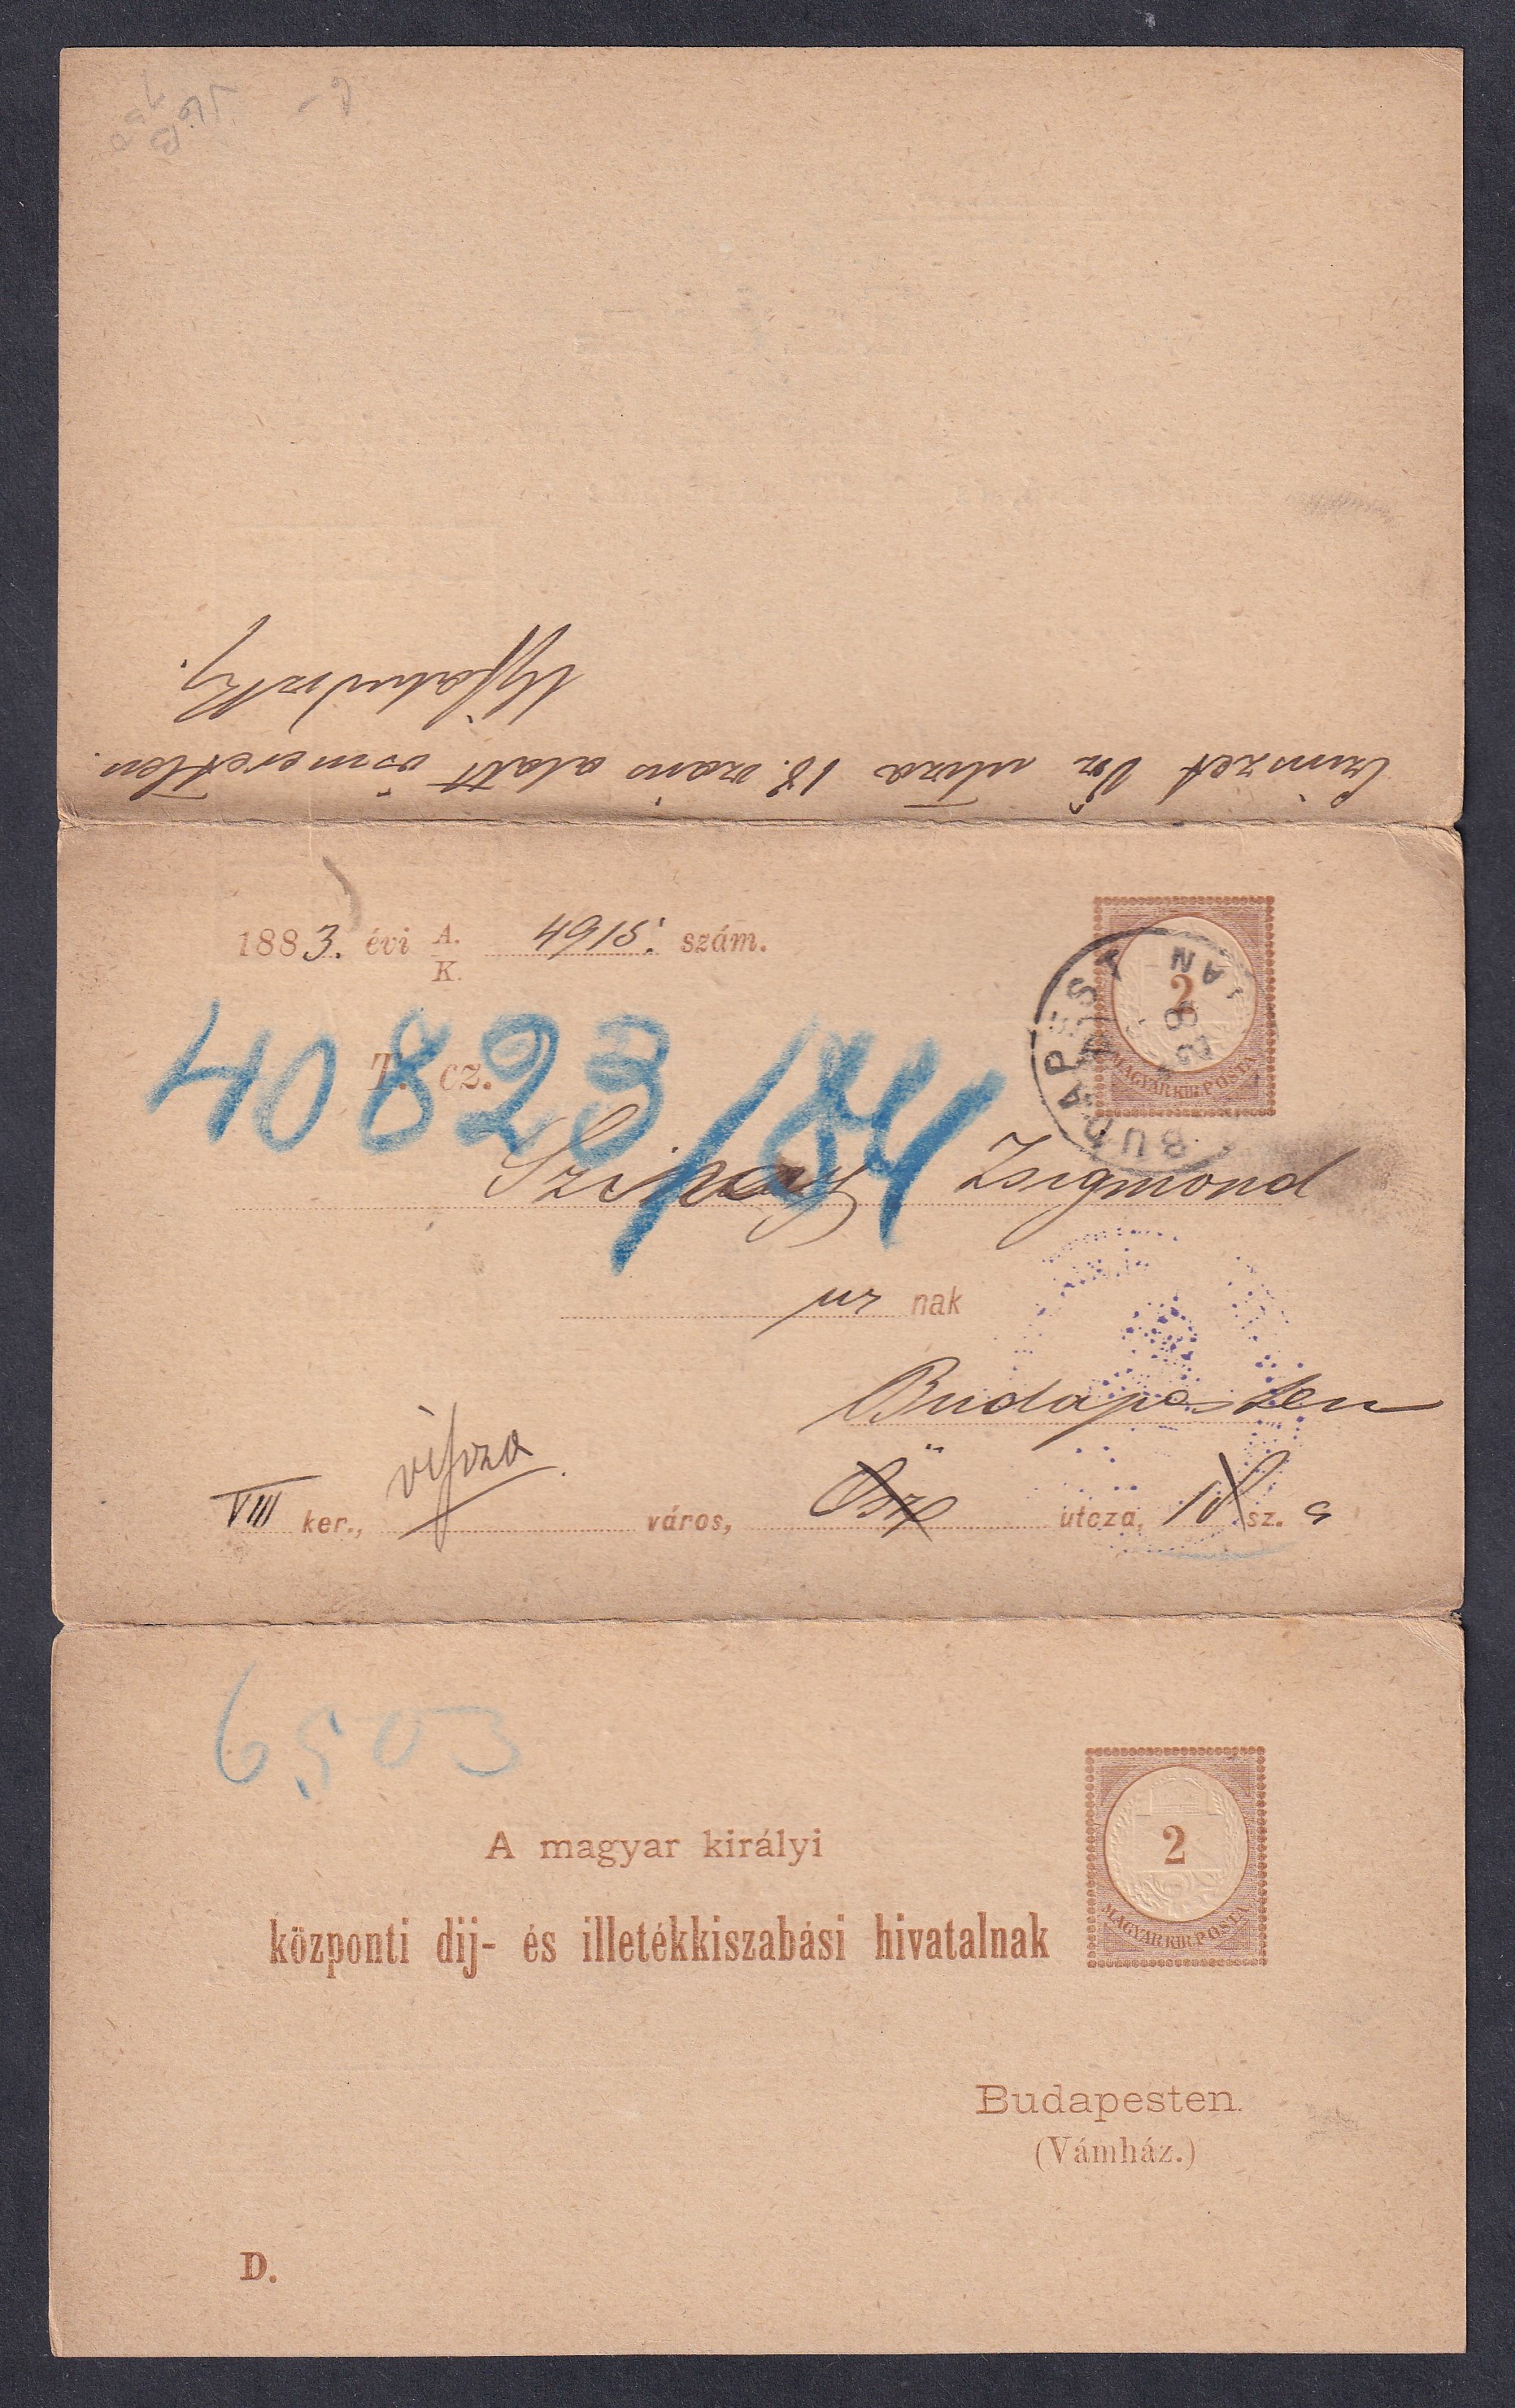 Czimzet Ősz utcza 18. szám alatt ösmeretlen.
1883. évi A./K. 4915. szám.
40823/84
T. cz.
Zsigmond
ur nak
Budapesten
VIII ker., vissza város, Ősz utcza, 18 sz. a
2
MAGYAR KIR. POSTA
BUDAPEST
JAN
6503
A magyar királyi
központi dij- és illetékkiszabási hivatalnak
2
MAGYAR KIR. POSTA
Budapesten.
(Vámház.)
D.